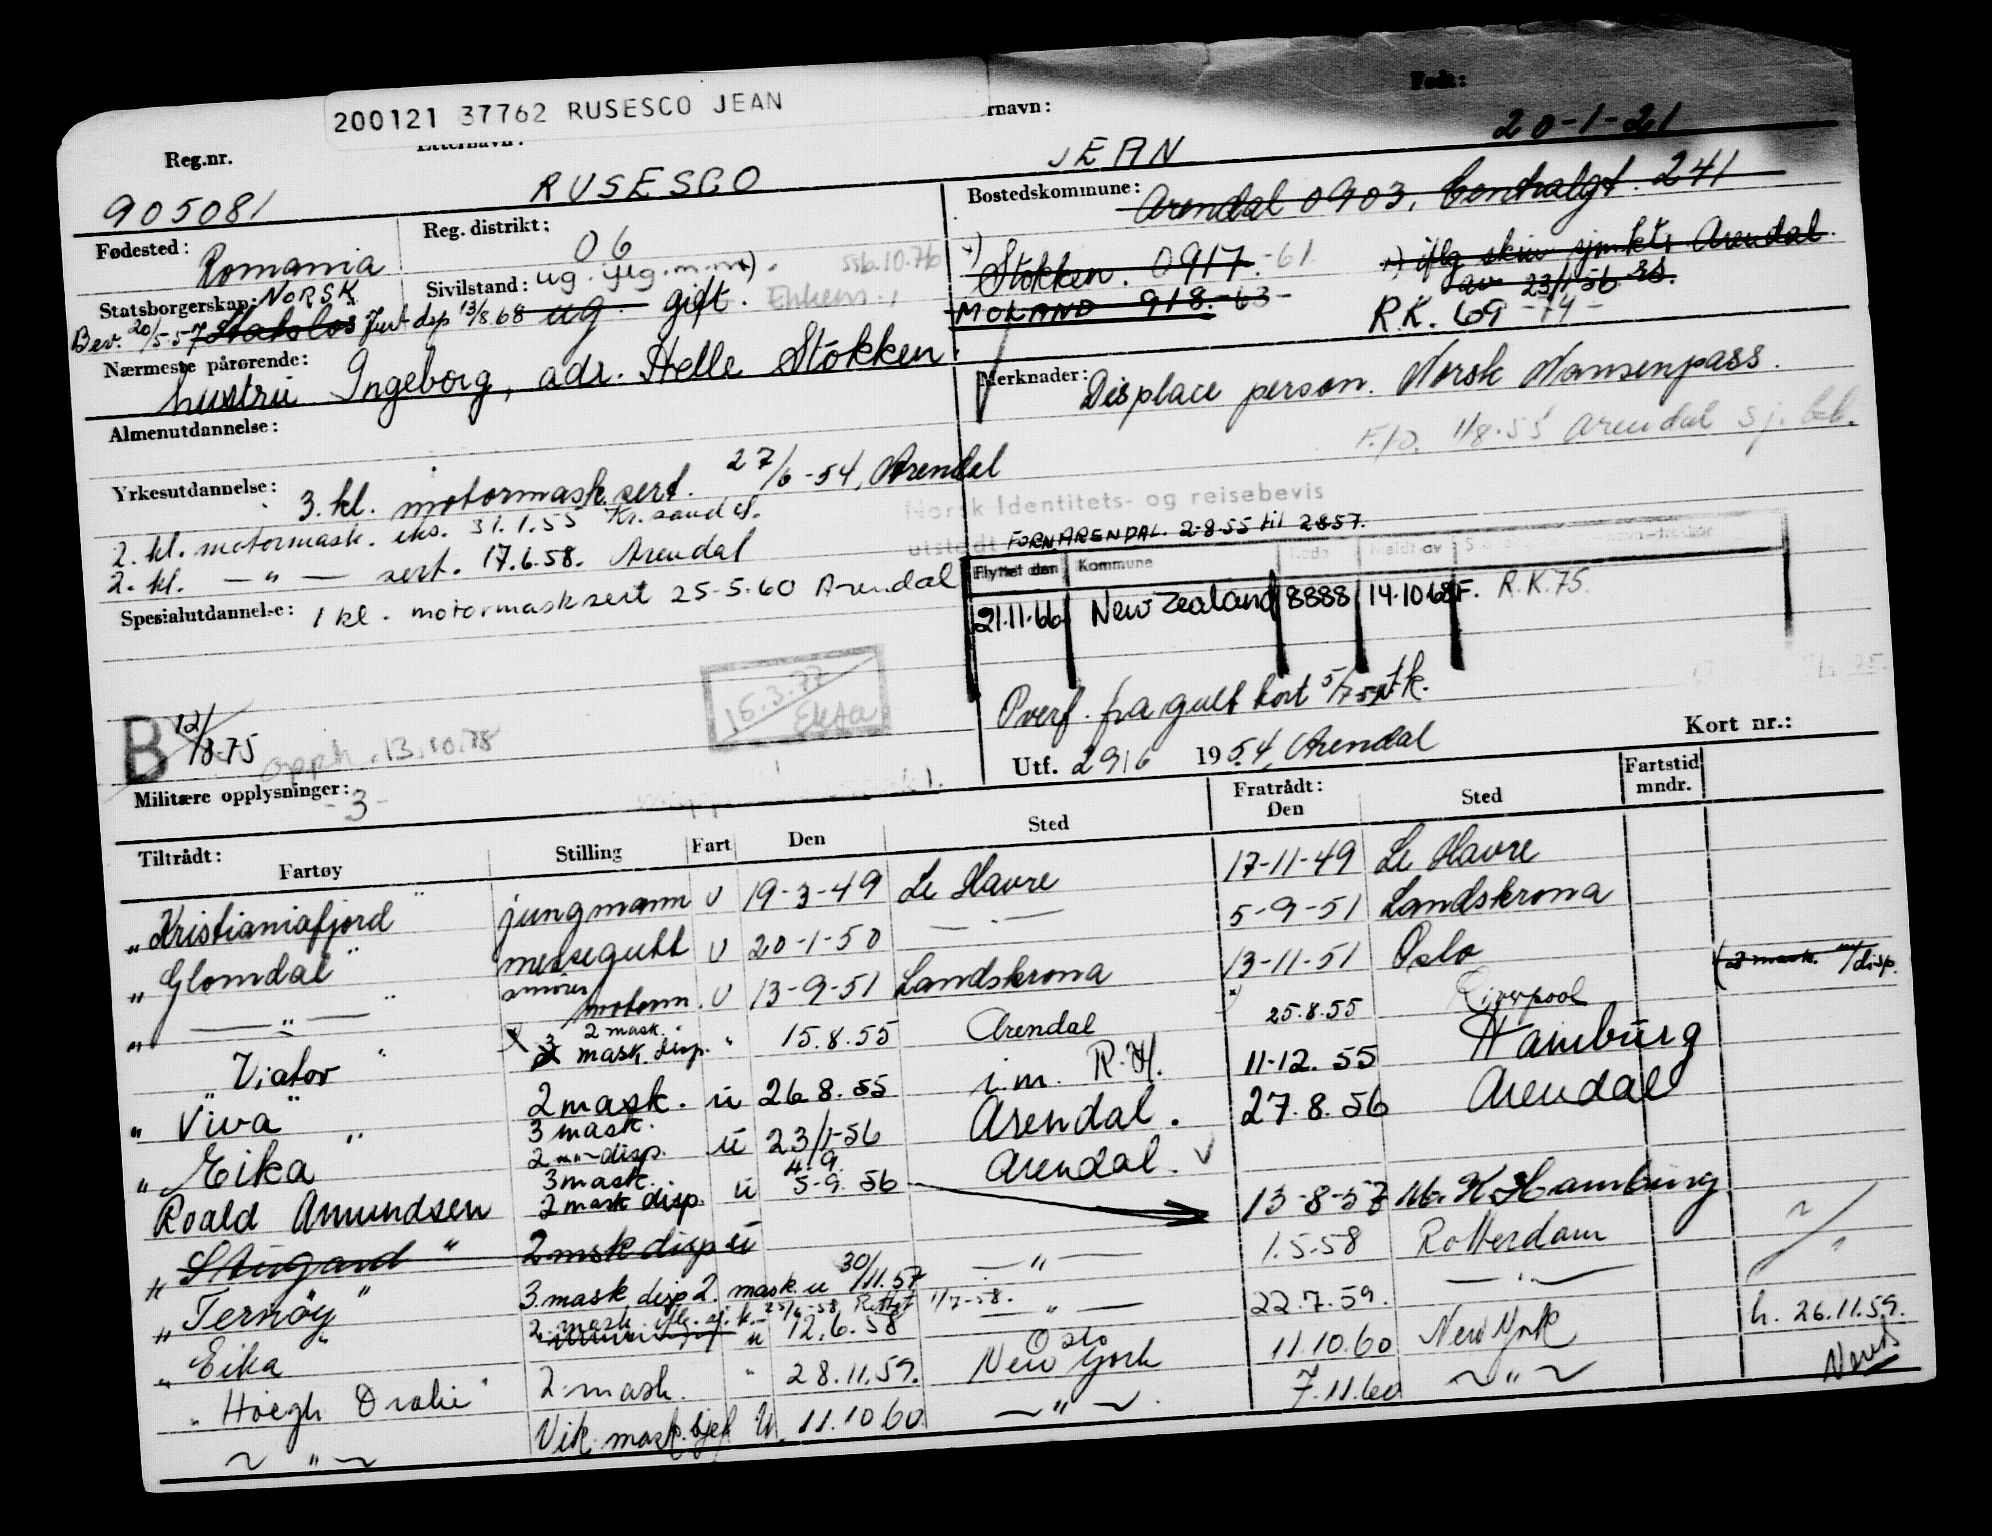 200121 37762 RUSESCO JEAN
Reg.nr. Etternavn: rnavn: Født:
905081 RUSESCO JEAN 20-1-21
Fødested: Romania
Reg. distrikt: 06
Bostedskommune: Arendal 0903, Centralgt. 241
Stokken. 0917.-61
MOLAND 918.-63-
av 23/1-56
R.K. 69 -74-
Statsborgerskap: NORSK
Bev. 20/5-57 Statsløs
Sivilstand: ug.
13/8.68 ug. gift.
Nærmeste pårørende: hustru Ingeborg, adr. Helle Stokken.
Merknader: Displace person. Norsk Nansenpass.
1/8-55 Arendal
Almenutdannelse:
Yrkesutdannelse: 3. kl. motormask. sert. 27/6-54, Arendal
2. kl. motormask. eks. 31.1.55 Kr.sand
2. kl. — " — sert. 17.6.58. Arendal
Spesialutdannelse: 1 kl. motormasksert 25-5-60 Arendal
Norsk Identitets- og reisebevis
utstedt FORNARENDAL. 2-8-55 til 2857.
Flyttet den Kommune Kode Meldt av
21.11.66 New Zealand 8888 14.10.68 F. R.K.75.
15.3.77
B 12/8-75
opph. 13.10.78
Overf. fra gult kort
Utf. 29/6 1954, Arendal
Kort nr.:
Militære opplysninger: -3-
Tiltrådt: Fartøy Stilling Fart Den Sted Fratrådt: Den Sted Fartstid mndr.
" Kristianiafjord " jungmann U 19-3-49 Le Havre 17-11-49 Le Havre
" Glomdal " messegutt U 20-1-50 — 5-9-51 Landskrona
" — " — " smører motorm. U 13-9-51 Landskrona 13-11-51 Oslo
" Viator " 3 2 mask. mask. disp. " 15.8.55 Arendal 25.8.55 Liverpool
" Viva " 2 mask. u 26.8.55 i.m. R.H. 11-12.55 Hamburg
" Eika " 3 mask. 2 disp. u 23/1-56 Arendal. 27.8.56 Arendal
Roald Amundsen 3 mask. 2 mask disp. u 4.9. 5-9.56 Arendal. 13-8-57 Hamburg
" " 2 mask disp u
" Ternøy " 3 mask disp 2. mask. u 30/11.57 — " — 1.5.58 Rotterdam
" Eika " 2 mask u 12.6.58 1/7-58. — " — 22.7.59. — " —
" Høegh Drake " 2. mask. " 28.11.59. Oslo New York 11.10.60 New York h. 26.11.59.
~ " ~ Vik. mask.sjef U. 11.10 60 ~ " ~ 7.11.60 ~ " ~